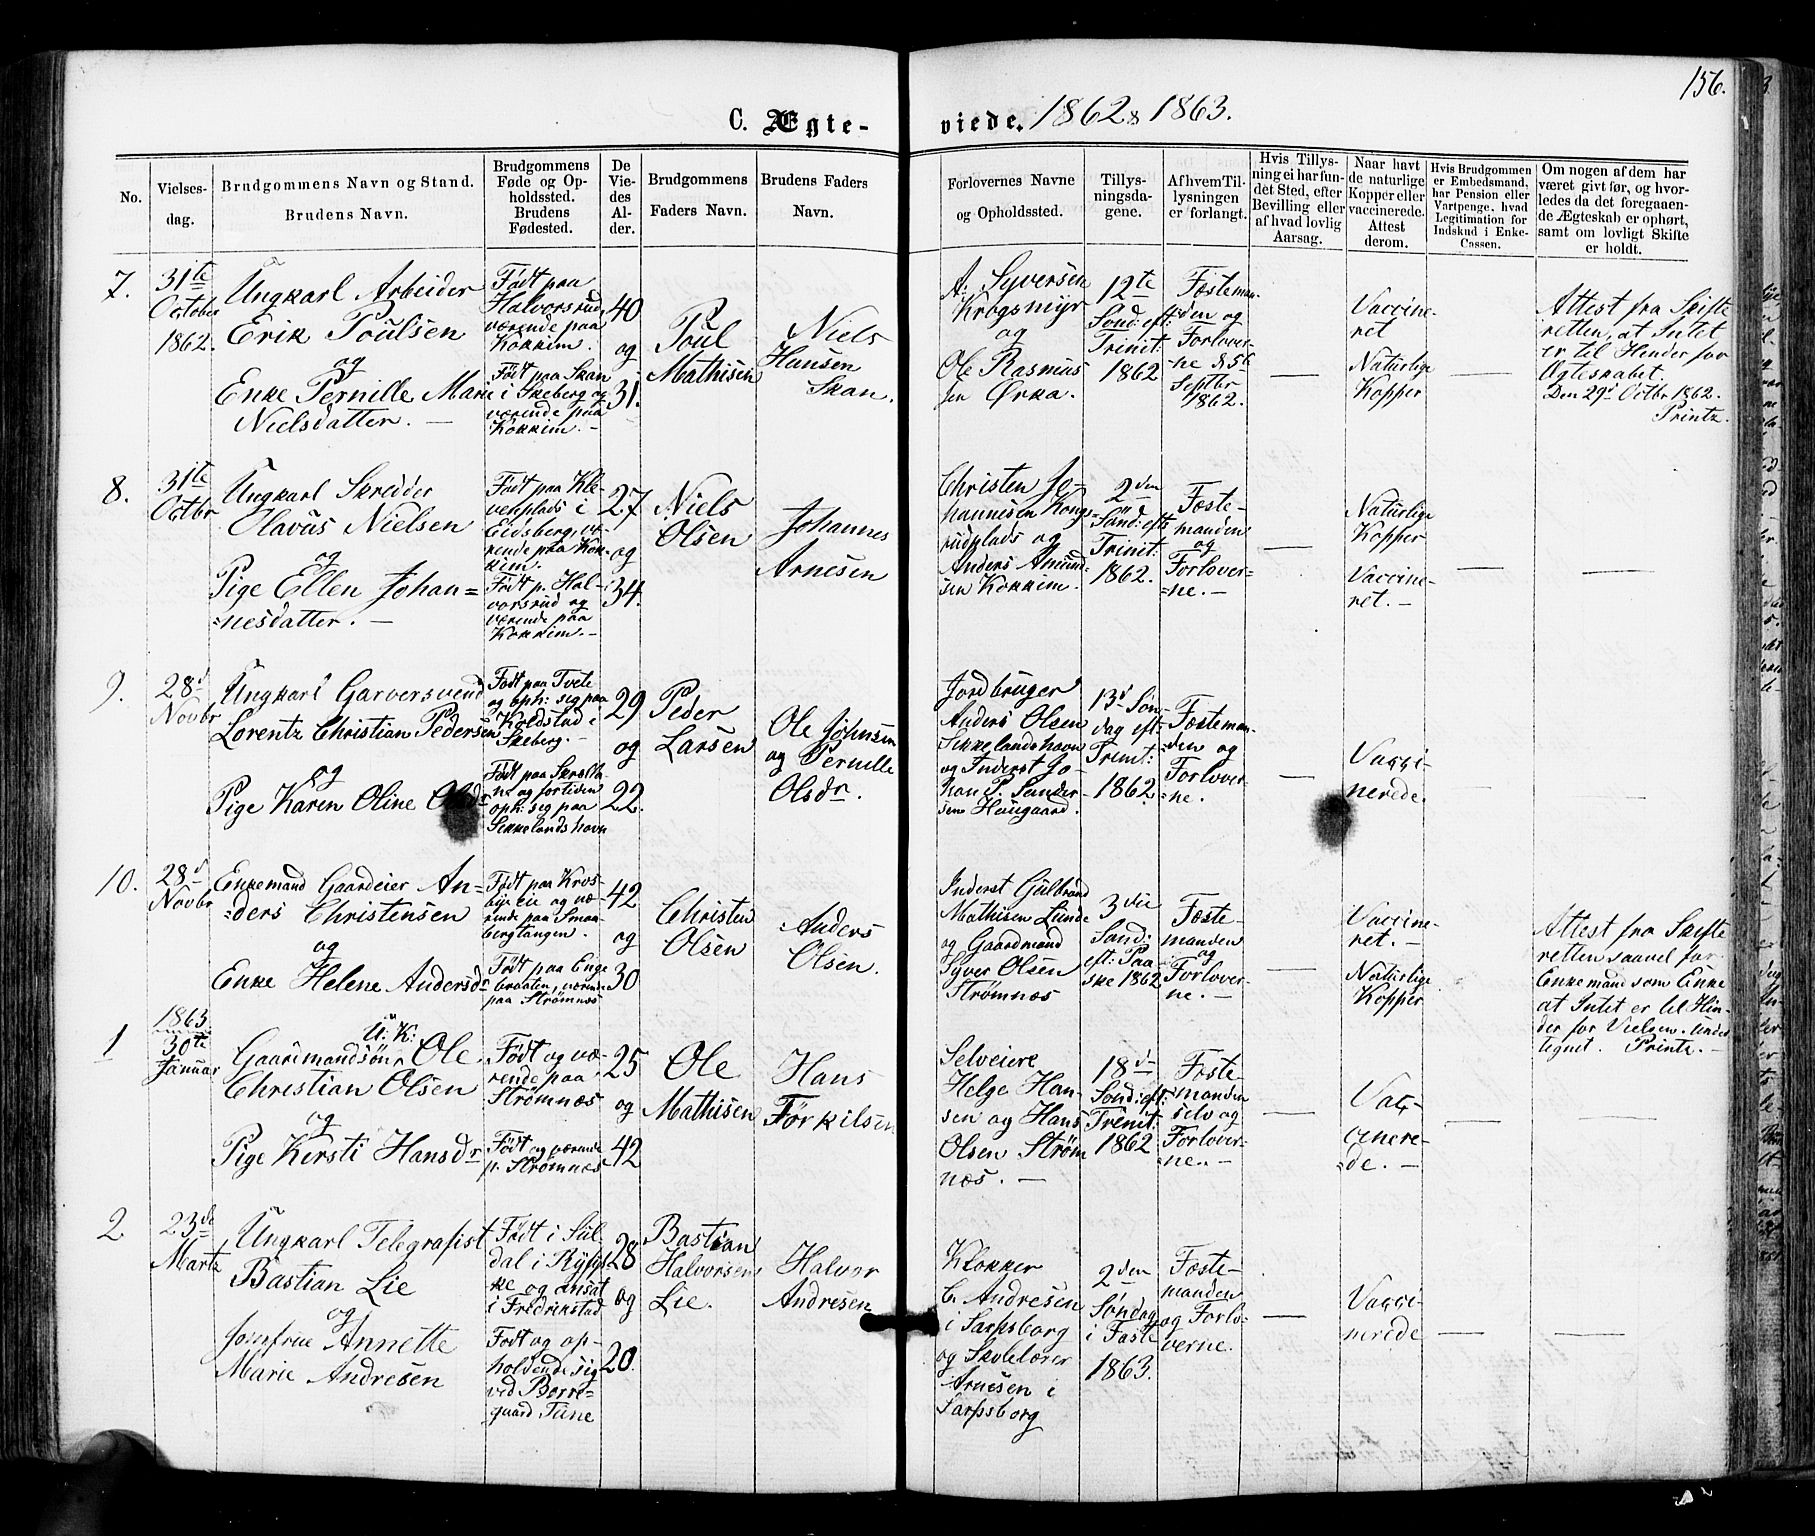 156.
C. Ægte-
viede. 1862 & 1863.
No.
Vielses-
dag.
Brudgommens Navn og Stand.
Brudens Navn.
Brudgommens
Føde og Op-
holdssted.
Brudens
Fødested.
De
Vie-
des
Al-
der.
Brudgommens
Faders Navn.
Brudens Faders
Navn.
Forlovernes Navne
og Opholdssted.
Tillys-
ningsda-
gene.
Af hvem Til-
lysningen
er forlangt.
Hvis Tillys-
ning ei har fun-
det Sted, efter
Bevilling eller
af hvad lovlig
Aarsag.
Naar havt
de naturlige
Kopper eller
vaccinerede.
Attest
derom.
Hvis Brudgommen
er Embedsmand,
har Pension eller
Vartpenge, hvad
Legitimation for
Indskud i Enke-
Cassen.
Om nogen af dem har
været givt før, og hvor-
ledes da det foregaaen-
de Ægteskab er ophørt,
samt om lovligt Skifte
er holdt.
7.
31te
Octobr
1862.
Ungkarl Arbeider
Erik Poulsen
og
Enke Pernille Marie
Nielsdatter. —
Født paa
Halvorsrud,
værende paa
Kokkim.
Født paa Skan
i Skeberg og
værende paa
Kokkim. —
40
og
31.
Poul
Mathisen
Niels
Hansen
Skan.
A. Syversen
Krogsmyr
og
Ole Rasmus
sen Ørka.
12te
Sønd: eft:
Trinit:
1862
Fæsteman-
den og
Forlover-
ne
Septbr
1862.
—
Vaccine-
ret
Naturlige
Kopper
—
Attest fra Skifte
retten, at Intet
er til Hinder for
Ægteskabet.
Den 29de Octbr 1862.
Printz.
8.
31te
Octbr
Ungkarl Skredder
Olavus Nielsen
og
Pige Ellen Johan=
=nesdatter. —
Født paa Kle-
venplads i
Eidsberg, væ-
rende paa Kok-
kim.
Født p. Hal-
vorsrud og
værende paa
Kokkim. —
27
og
34.
Niels
Olsen
Johannes
Arnesen
Christen Jo-
hannisen Kongs-
rudplads og
Anders Amund-
sen Kokkim.
2den
Sønd: eft:
Trinit:
1862.
Fæste-
manden
og
Forlover-
=ne. —
—
Naturlige
Kopper
Vaccine-
ret. —
—
—
9.
28d
Novbr
Ungkarl Garversvend
Lorentz Christian Pedersen
og
Pige Karen Oline Olsdr
Født paa Tvete
og oph: sig paa
Koldstad i
Skeberg. —
Født paa
og for tiden
oph: sig paa
Sekkelandshavn
29
og
22.
Peder
Larsen
Ole Johnsen
og Pernille
Olsdr.
Jordbruger
Anders Olsen
Sekkelandshavn
og Inderst Jo-
han P. Sunder-
sen Haugaard.
13d Søn-
dag eft:
Trinit:
1862
Fæsteman-
=den og
Forlover-
=ne.
—
Vacci-
nerede.
—
10.
28d
Novbr
Enkemand Gaardeier An=
=ders Christensen
og
Enke Helene Andersdr
Født paa Kros-
byeie og væ-
rende paa Smaa-
bergtangen.
Født paa Enge
braaten, værende
paa Strømnæs
42
og
30
Christen
Olsen
Anders
Olsen.
Inderst Gulbrand
Mathisen Lunde
og Gaardmand
Syver Olsen
Strømnæs
3die
Sønd:
eft: Paa-
ske 1862
Fæste-
manden
og
Forlover-
ne. —
—
Vaccine-
ret. —
Naturlige
Kopper
—
Attest fra Skifte
retten saavel for
Enkemand som Enke
at Intet er til Hin-
der for Vielsen. under
tegnet. Printz. —
1
1863
30te
Januar
U: K:
Gaardmandsøn Ole
Christian Olsen
og
Pige Kersti Hansdr
Født og væ-
rende paa
Strømnæs
Født og værende
p. Strømnæs
25
og
42
Ole
Mathisen
Hans
Torkilsen
Selveiere
Helge Han-
sen og Hans
Olsen Strøm
næs. —
18d
Sønd: eft:
Trenit:
1862
Fæste-
manden
selv og
Forlover-
=ne. —
—
Vac-
cinere-
de. —
—
2
23de
Martz
Ungkarl Telegrafist
Bastian Lie
og
Jomfrue Annette
Marie Andresen
Født i Sul-
dal i Ryfyl-
ke og ansat
i Fredrikstad
Født og op-
holdende sig
ved Borre-
guard Tune
28
og
20.
Bastian
Halvorsen
Lie.
Halvor
Andresen
Klokker
C. Andresen
i Sarpsborg
og Skolelærer
Arnesen i
Sarpsborg
2den
Søndag
i Faste
1863.
Fæste-
manden
og Forlo-
verne.
—
Vacci-
nerede
—
—